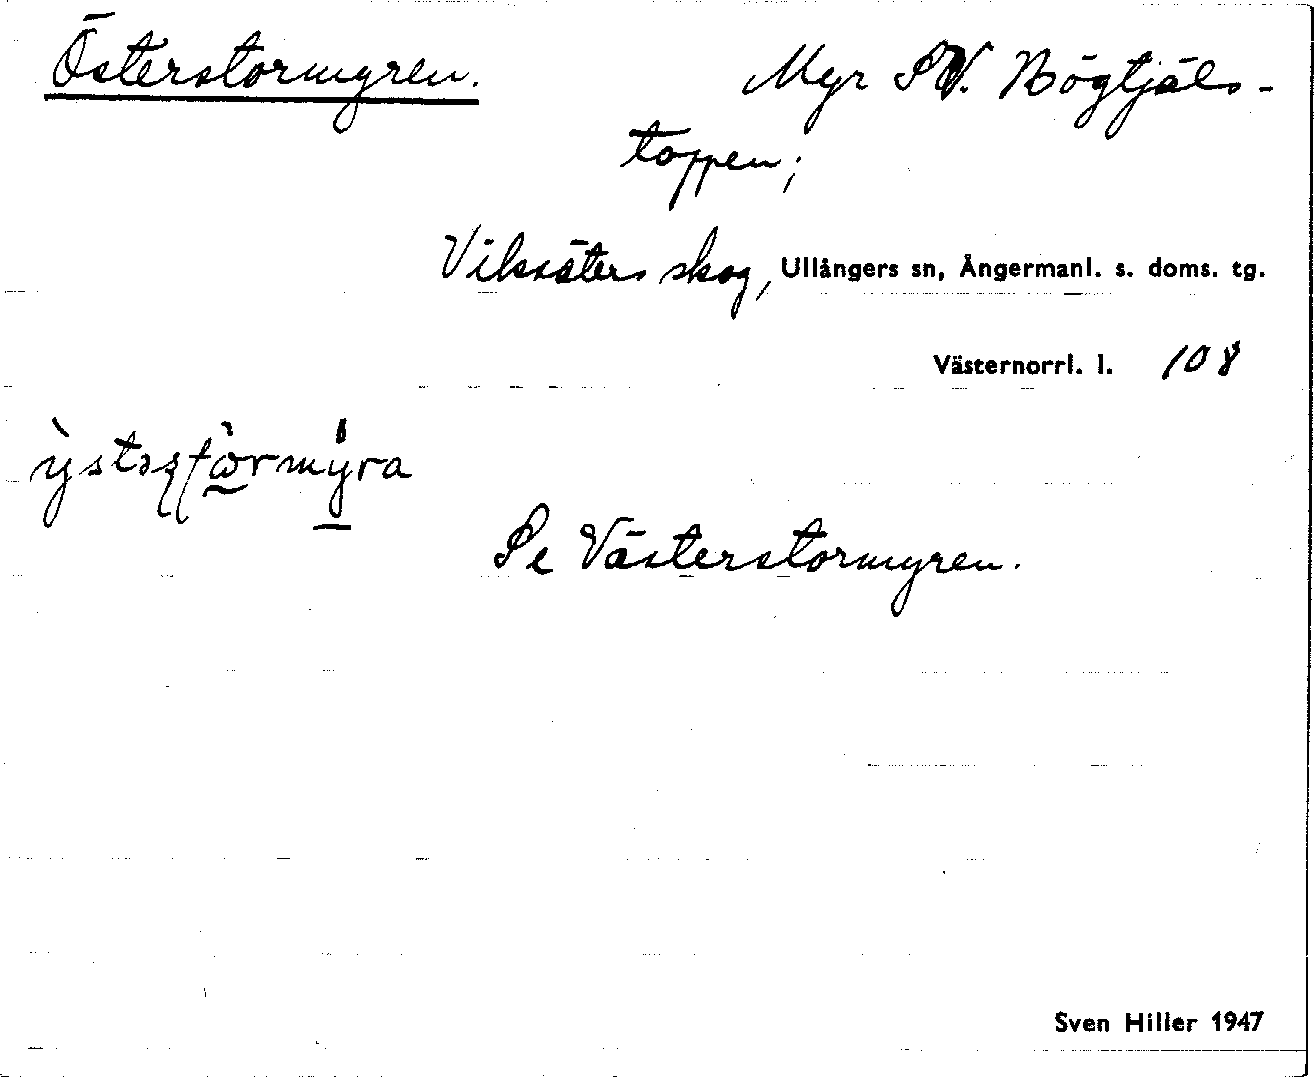 Österstormyren. Myr SV. Högtjäls-
toppen;
Viksäters skog, Ullångers sn, Ångermanl. s. doms. tg.
Västernorrl. l. 108
Se Västerstormyren.
Sven Hiller 1947